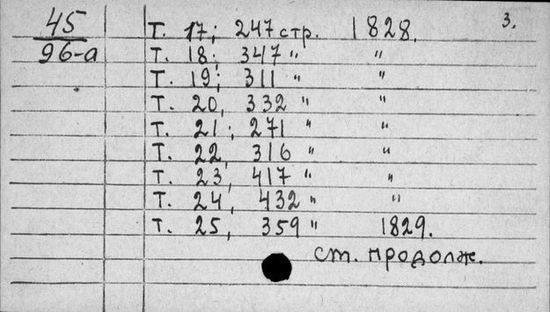 45 Т. 17; 247 стр. 1828. 3.
96-а Т. 18; 347 " "
Т. 19; 311 " "
Т. 20, 332 " "
Т. 21; 271 " "
Т. 22, 316 " "
Т. 23, 417 " "
Т. 24, 432 " "
Т. 25, 359 " 1829.
ст. продолж.